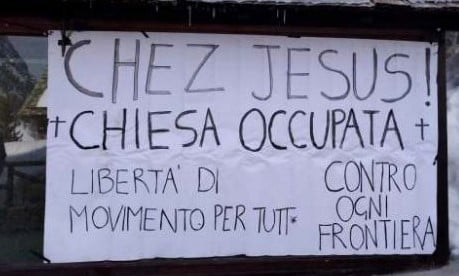 CHEZ JESUS!
CHIESA OCCUPATA
LIBERTA' DI
MOVIMENTO PER TUTT*
CONTRO
OGNI
FRONTIERA